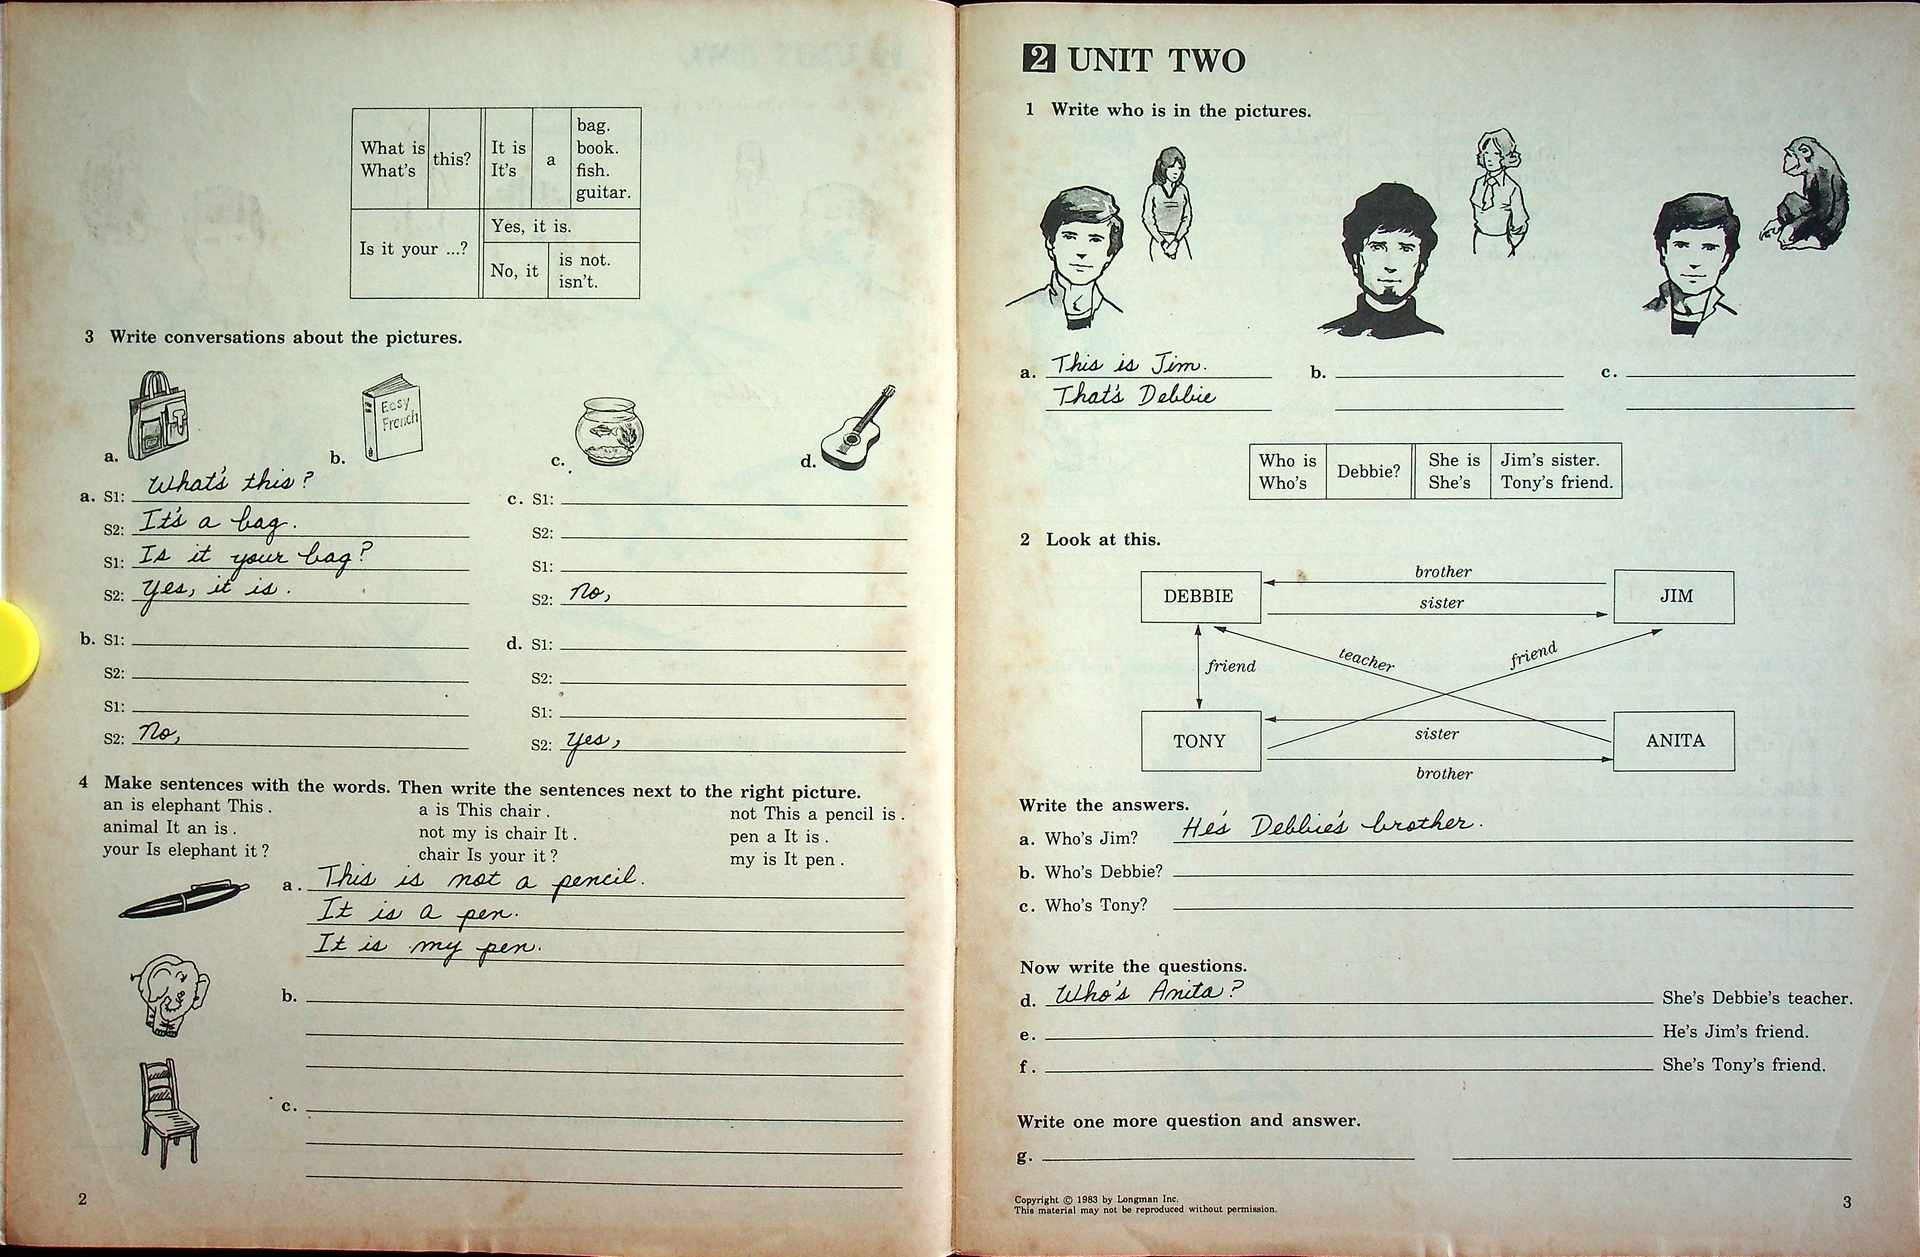 What is
What's
this?
It is
It's
a
bag.
book.
fish.
guitar.
Is it your ...?
Yes, it is.
No, it
is not.
isn't.
3 Write conversations about the pictures.
Easy
French
a.
b.
c.
d.
a. S1: What's this?
S2: It's a bag.
S1: Is it your bag?
S2: Yes, it is.
b. S1:
S2:
S1:
S2: No,
c. S1:
S2:
S1:
S2: No,
d. S1:
S2:
S1:
S2: Yes,
4 Make sentences with the words. Then write the sentences next to the right picture.
an is elephant This .
animal It an is .
your Is elephant it ?
a is This chair .
not my is chair It .
chair Is your it ?
not This a pencil is .
pen a It is .
my is It pen .
a. This is not a pencil.
It is a pen.
It is my pen.
b.
c.
2
2 UNIT TWO
1 Write who is in the pictures.
a. This is Jim.
That's Debbie
b.
c.
Who is
Who's
Debbie?
She is
She's
Jim's sister.
Tony's friend.
2 Look at this.
DEBBIE
brother
sister
JIM
friend
teacher
friend
TONY
sister
brother
ANITA
Write the answers.
a. Who's Jim? He's Debbie's brother.
b. Who's Debbie?
c. Who's Tony?
Now write the questions.
d. Who's Anita? She's Debbie's teacher.
e. He's Jim's friend.
f. She's Tony's friend.
Write one more question and answer.
g.
Copyright © 1983 by Longman Inc.
This material may not be reproduced without permission.
3